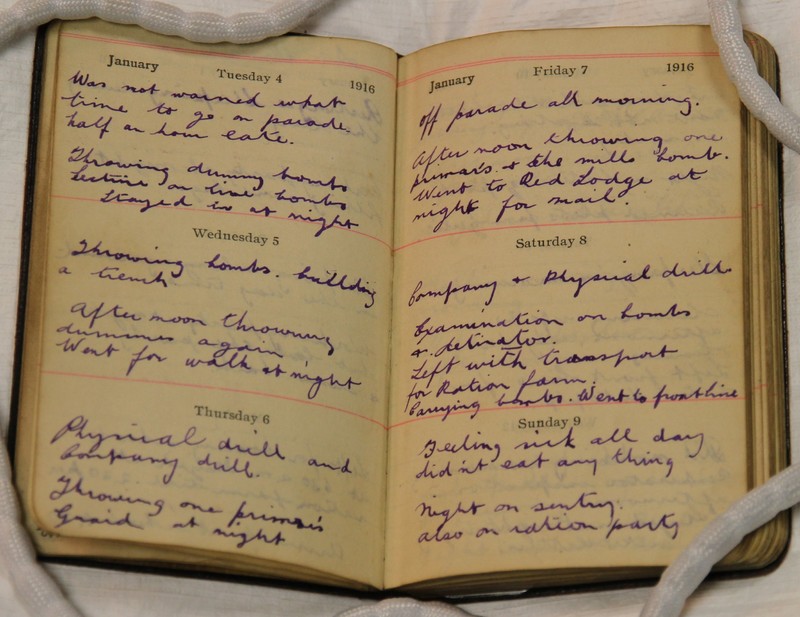 January Tuesday 4 1916
Was not warned what
time to go on parade.
half an hour late.
Throwing dummy bombs
Lecture on live bombs
Stayed in at night
Wednesday 5
Throwing bombs. building
a trench
After noon throwing
dummies again
Went for walk at night
Thursday 6
Physical drill and
Company drill.
Throwing one primers
Guard at night
January Friday 7 1916
off parade all morning.
After noon throwing one
primers & the mills bomb.
Went to Red Lodge at
night for mail.
Saturday 8
Company & Physical drill
Examination on bombs
& detinator.
Left with transport
for Ration farm.
Carrying bombs. Went to front line
Sunday 9
Feeling sick all day
did'nt eat any thing
Night on sentry.
also on ration party